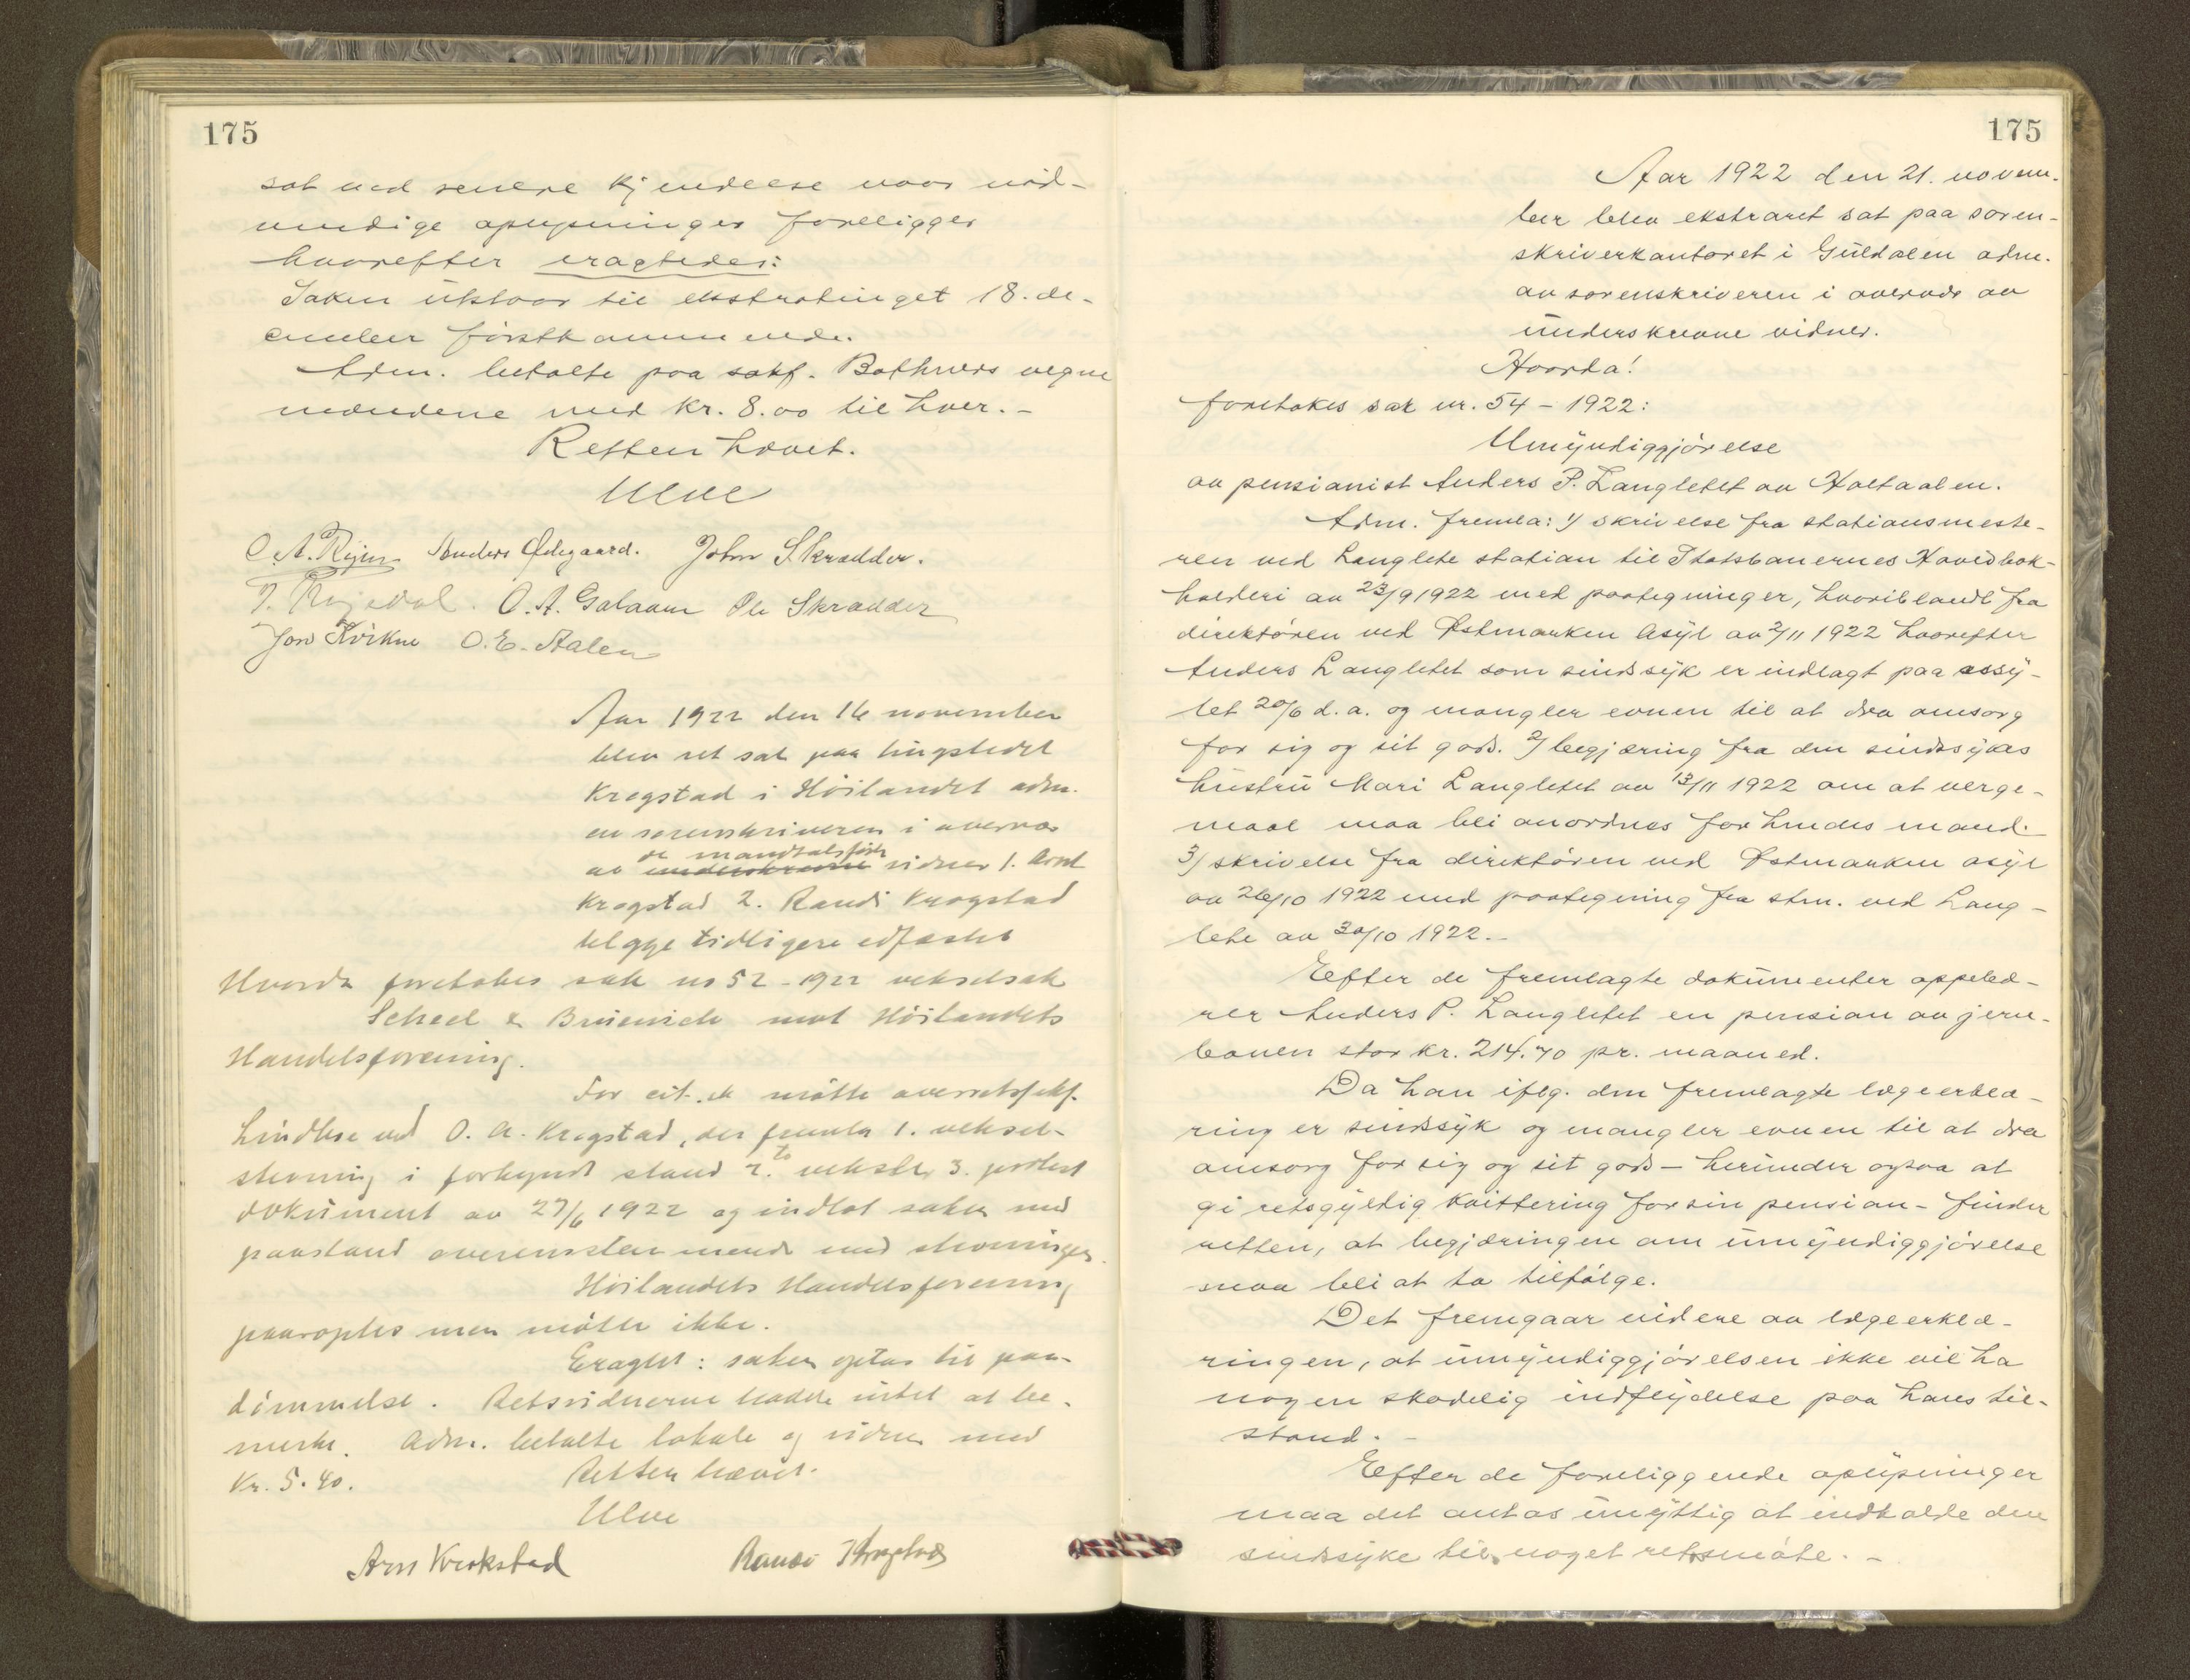 175
sat ved senere kjendelse naar nød-
vendige oplysninger foreligger
hvorefter eragtedes:
Saken utstaar til ekstratinget 18. de-
cember førstkommende.
Adm. betalte paa sakf. Bothners vegne
mændene med kr. 8.00 til hver. -
Retten hævet.
Ulve
O. A. Rijen Anders Ødegaard. John Skrædder.
O. A. Galaaen Ole Skrædder
Jon Kvikne O. E. Aalen
Aar 1922 den 16 november
blev ret sat paa tingstedet
Krogstad i Høilandet adm.
av sorenskriveren i overvær
de mandtalsførte
av underskrevne vidner 1. Arnt
Krogstad 2. Randi Krogstad
begge tidligere edfæstet
Hvorda foretokes sak no 52 - 1922 vekselsak
Scheel & Bruenich mot Høilandets
Handelsforening.
For cit. møtte overretssakf.
Lindboe ved O. A. Krogstad, der fremla 1. veksel-
stevning i forkynt stand 2. to veksler, 3. protest
dokument av 27/6 1922 og indlot saken med
paastand overensstemmende med stevningen.
Høilandets Handelsforening
paaroptes men møtte ikke.
Eragtet: saken optas til paa-
dømmelse. Retsvidnerne hadde intet at be-
merke. Adm. betalte lokale og vidner med
Kr. 5.40. Retten hævet.
Ulve
Arnt Krokstad Randi Krogstad
175
Aar 1922 den 21. novem-
ber blev ekstraret sat paa soren-
skriverkontoret i Guldalen adm.
av sorenskriveren i overvær av
underskrevne vidner.
Hvorda!
foretokes sak nr. 54 - 1922:
Umyndiggjørelse
av pensionist Anders P. Langletet av Holtaalen.
Adm. fremla: 1/ skrivelse fra stationsmeste-
ren ved Langlete station til Statsbanernes Hovedbok-
holderi av 23/9 1922 med paategninger, hvoriblandt fra
direktøren ved Østmarken Asyl av 2/11 1922 hvorefter
Anders Langletet som sindssyk er indlagt paa assy-
let 20/6 d. a. og mangler evnen til at dra omsorg
for sig og sit gods. 2/ begjæring fra den sindssykes
hustru Mari Langletet av 13/11 1922 om at verge-
maal maa bli anordnes for hendes mand.
3/ skrivelse fra direktøren ved Østmarken asyl
av 26/10 1922 med paategning fra stm. ved Lang-
lete av 30/10 1922. -
Efter de fremlagte dokumenter oppebæ-
rer Anders P. Langletet en pension av jern-
banen stor kr. 214.70 pr. maaned.
Da han iflg. den fremlagte lægeerklæ-
ring er sindssyk og mangler evnen til at dra
omsorg for sig og sit gods - herunder ogsaa at
gi retsgyldig kvittering for sin pension - finder
retten, at begjæringen om umyndiggjørelse
maa bli at ta tilfølge.
Det fremgaar videre av lægeerklæ-
ringen, at umyndiggjørelsen ikke vil ha
nogen skadelig indflydelse paa hans til-
stand. -
Efter de foreliggende oplysninger
maa det antas unyttig at indkalde den
sindssyke til noget retsmøte. -